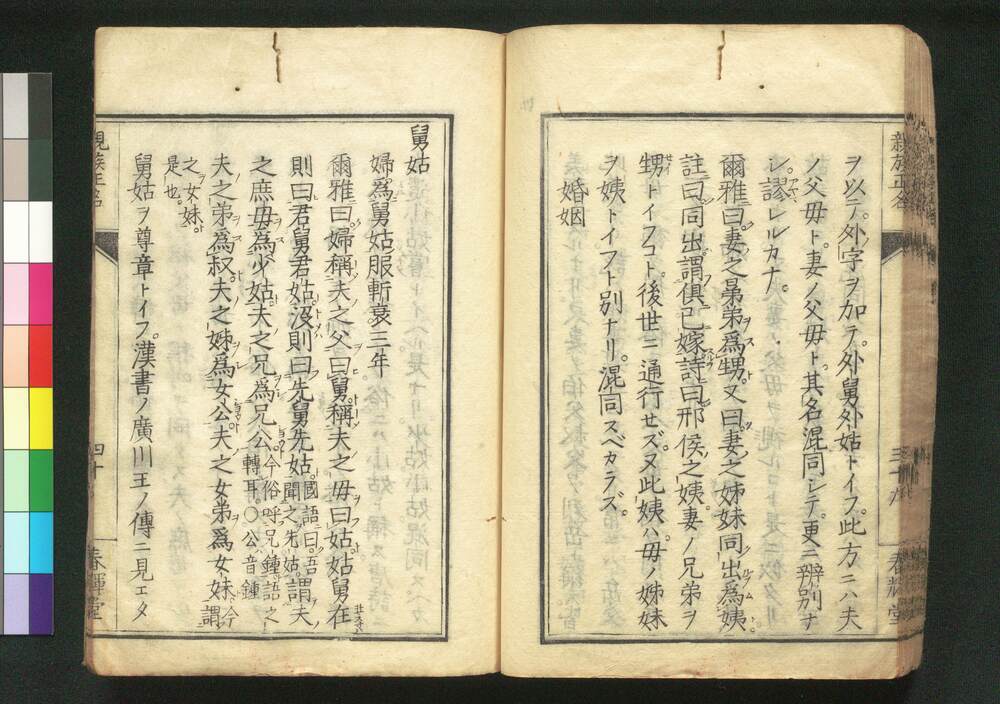 親族正名
三十九
春輝堂
ヲ以テ外ノ字ヲ加テ外舅外姑トイフ此方ニハ夫
ノ父母ト妻ノ父母ト其名混同シテ更ニ辨別ナ
シ謬レルカナ
爾雅曰妻之晜弟爲甥又曰妻之姊妹同出爲姨
註曰同出謂俱已嫁詩曰邢侯之姨妻ノ兄弟ヲ
甥トイフコト後世ニ通行セズ又此姨ハ母ノ姊妹
ヲ姨トイフト別ナリ混同スベカラズ
婚姻
舅姑
婦爲舅姑服斬衰三年
爾雅曰婦稱夫之父曰舅稱夫之母曰姑姑舅在
則曰君舅君姑沒則曰先舅先姑國語曰吾聞之先姑謂夫
之庶母爲少姑夫之兄爲兄公今俗呼兄鍾語之轉耳〇公音鍾
夫之弟爲叔夫之姊爲女公夫之女弟爲女妹今謂
之女妹是也
舅姑ヲ尊章トイフ漢書ノ廣川王ノ傳ニ見エタ
親族正名
四十
春輝堂